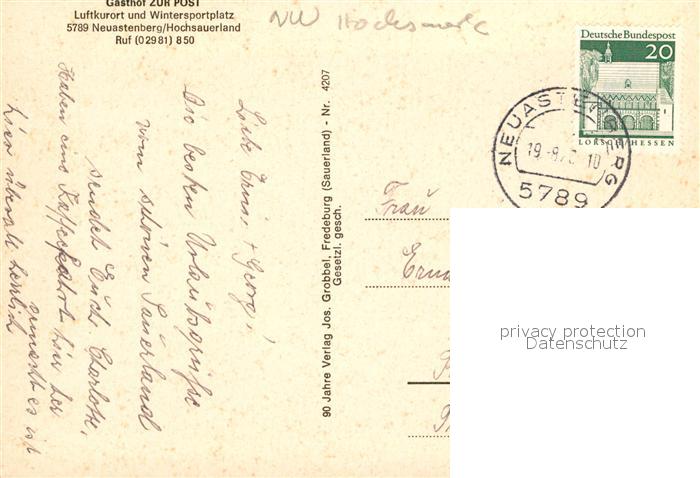 Gasthof ZUR POST
Luftkurort und Wintersportplatz
5789 Neuastenberg/Hochsauerland
Ruf (02981) 850
NW Hochsauerl
Deutsche Bundespost
20
LORSCH/HESSEN
NEUASTENBERG
19.-8.7 10
5789
90 Jahre Verlag Jos. Grobbel, Fredeburg (Sauerland) - Nr. 4207
Gesetzl. gesch.
Liebe Erna, + Georg!
Die besten Urlaubsgrüße
vom schönen Sauerland
sendet Euch Charlotte,
Haben eine Kaffeefahrt hier her
gemacht es ist
hier überall herrlich
Frau
Erna
privacy protection
Datenschutz